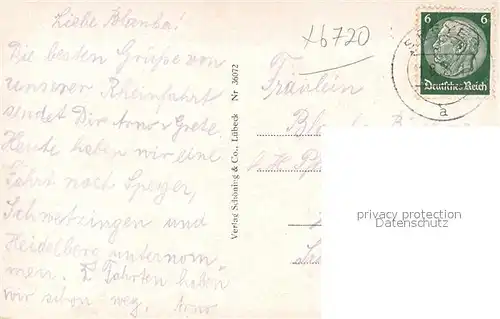 Liebe Blanka!
Die besten Grüße von
unserer Rheinfahrt
sendet Dir Arno u. Grete.
Heute haben wir eine
Fahrt nach Speyer,
Schwetzingen und
Heidelberg unternom
men. 2 Fahrten haben
wir schon weg. Arno
Verlag Schöning & Co., Lübeck Nr 36072
xb720
Fräulein
6 6
Deutsches Reich
a
privacy protection
VEIKKOS.COM